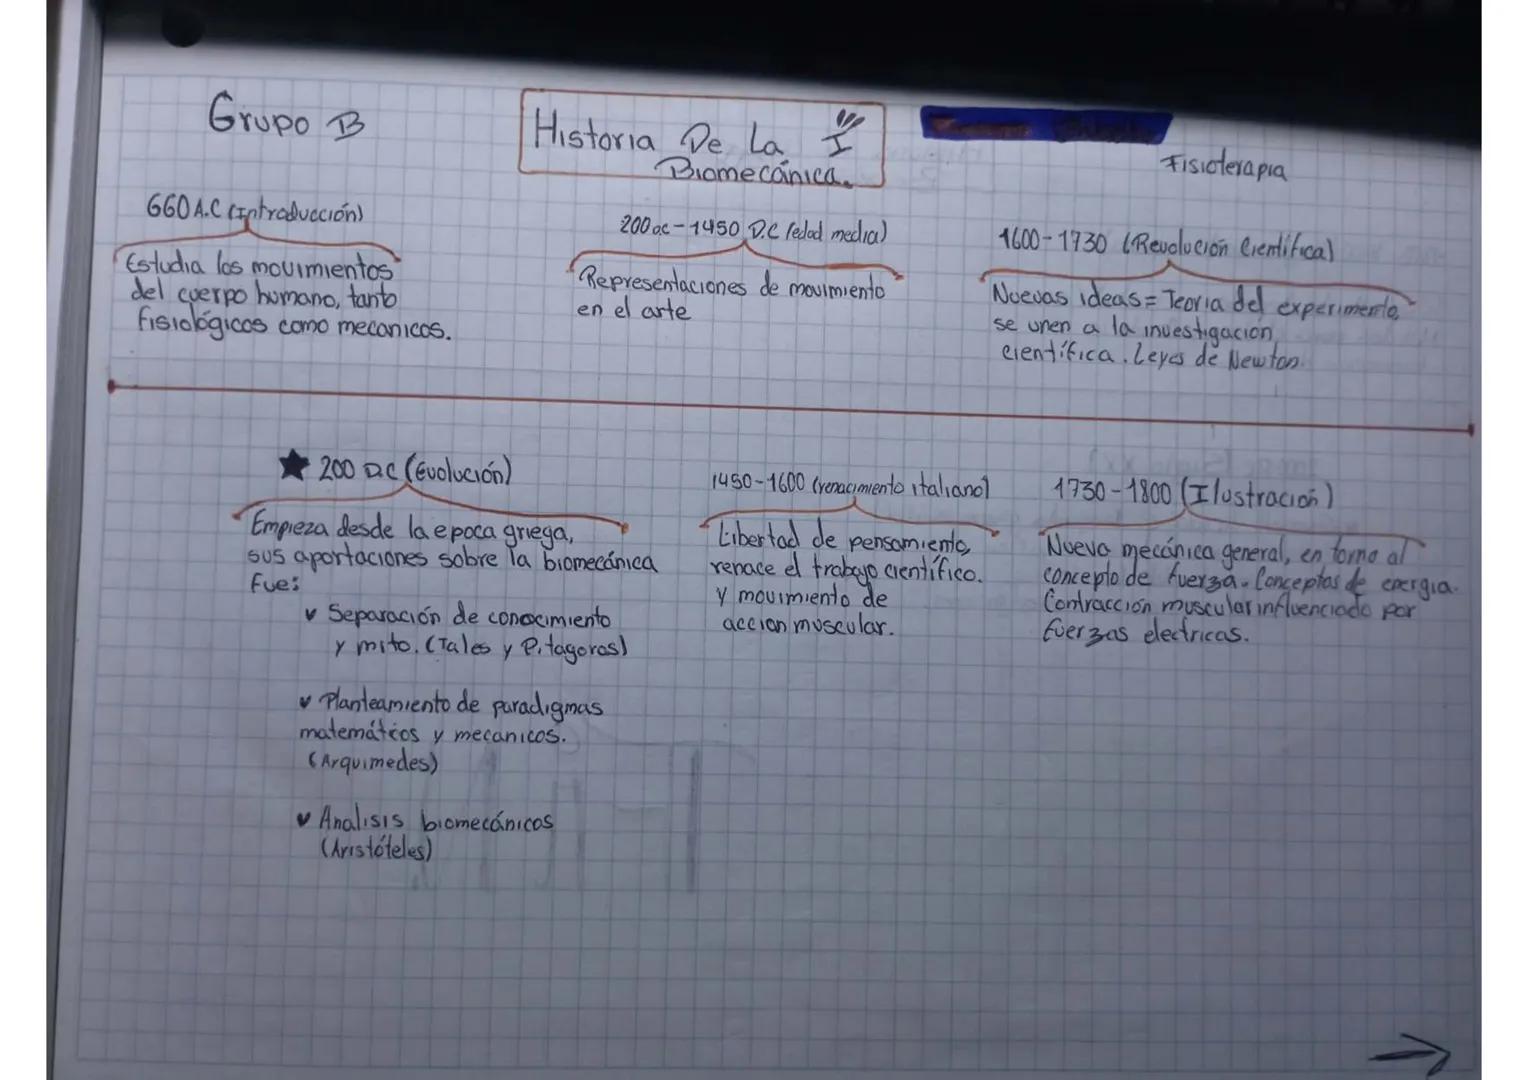 Grupo B
Historia De La I
Biomecánica.
Fisioterapia
660 A.C (Introducción)
Estudia los movimientos
del cuerpo humano, tanto
fisiológicos como mecanicos.
200 a.c - 1450 D.C (edad media)
Representaciones de movimiento
en el arte
1600 - 1730 (Revolución Científica)
Nuevas ideas = Teoria del experimento,
se unen a la investigación
científica. Leyes de Newton.
★ 200 D.C (Evolución)
Empieza desde la epoca griega,
sus aportaciones sobre la biomecánica
fue:
v Separación de conocimiento
y mito. (Tales y Pitagoras)
v Planteamiento de paradigmas
matemáticos y mecanicos.
(Arquimedes)
v Analisis biomecánicos
(Aristóteles)
1450 - 1600 (renacimiento italiano)
Libertad de pensamiento,
renace el trabajo científico.
y movimiento de
accion muscular.
1730 - 1800 (Ilustración)
Nueva mecánica general, en torno al
concepto de fuerza. Conceptos de energia.
Contracción muscular influenciado por
fuerzas electricas.